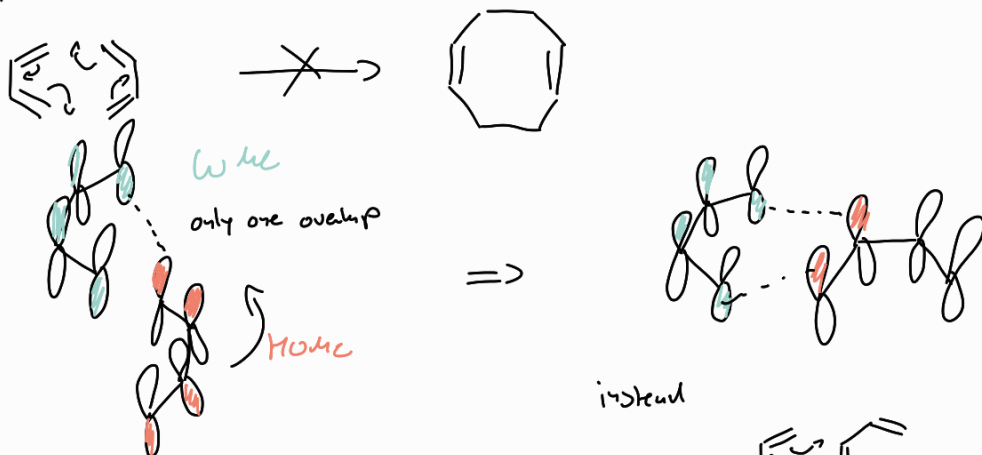 LUMO
only one overlap
HOMO
instead